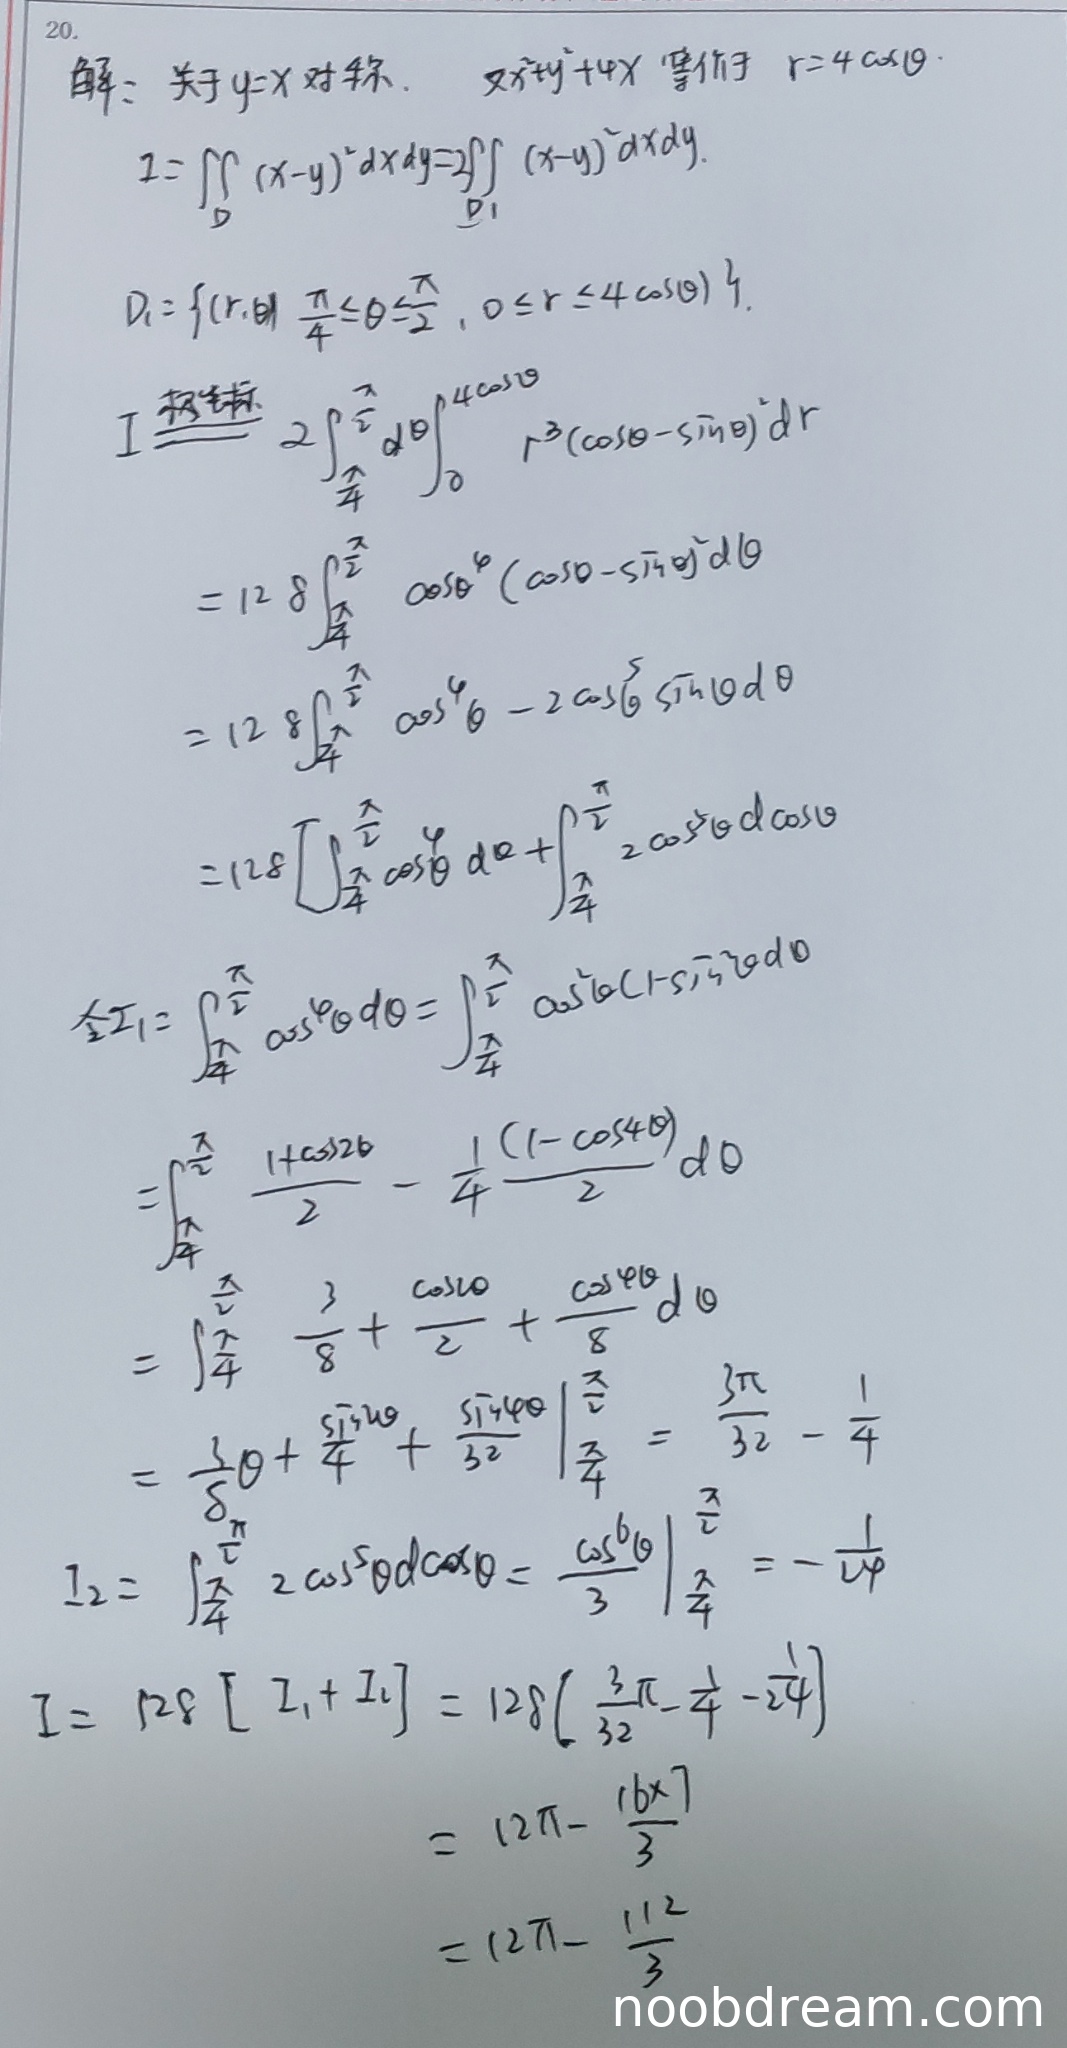 20.
解: 关于y=x对称. 又x²+y²+4x 等价于 r=4cosθ.
I=∬_D (x-y)²dxdy=2∬_{D1} (x-y)²dxdy.
D₁={(r,θ)| π/4≤θ≤π/2, 0≤r≤4cosθ)}.
I 极坐标 2∫_{π/4}^{π/2}dθ∫_0^{4cosθ} r³(cosθ-sinθ)²dr
=128∫_{π/4}^{π/2} cosθ⁴(cosθ-sinθ)²dθ
=128∫_{π/4}^{π/2} cos⁴θ-2cos⁵θsinθdθ
=128[∫_{π/4}^{π/2}cos⁴θdθ+∫_{π/4}^{π/2}2cos⁵θdcosθ
令I₁=∫_{π/4}^{π/2}cos⁴θdθ=∫_{π/4}^{π/2}cos²θ(1-sin²θdθ
=∫_{π/4}^{π/2} (1+cos2θ)/2 - 1/4 (1-cos4θ)/2 dθ
=∫_{π/4}^{π/2} 3/8+cos2θ/2+cos4θ/8 dθ
=3/8θ+sin2θ/4+sin4θ/32|_{π/4}^{π/2}=3π/32-1/4
I₂=∫_{π/4}^{π/2}2cos⁵θdcosθ=cos⁶θ/3|_{π/4}^{π/2}=-1/24
I=128[I₁+I₂]=128(3/32π-1/4-1/24)
=12π-16×7/3
=12π-112/3
noobdream.com